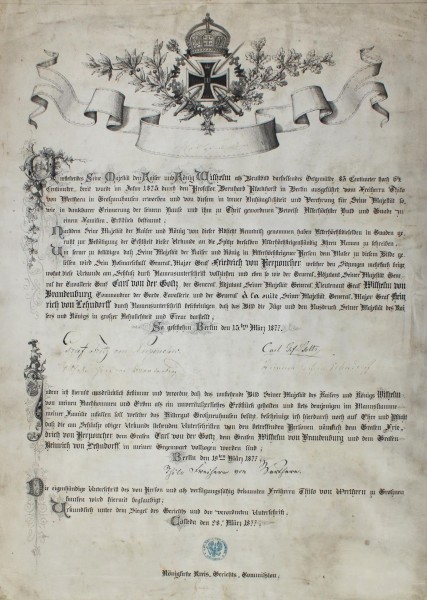 Seine Majestät den Kaiser und König Wilhelm als Brustbild darstellendes Oelgemälde 85 Centimeter hoch
Centimeter breit wurde im Jahre 1875 durch den Professor Bernhard Plockhorst in Berlin ausgeführt vom Freiherrn Thilo
von Werthern in Großneuhausen erworben und von diesem in treuer Anhänglichkeit und Verehrung für Seine Majestät so
wie in dankbarer Erinnerung der seinem Hause und ihm zu Theil gewordenen Beweise Allerhöchster Huld und Gnade zu
einem Familien Erbstück bestimmt
Nachdem Seine Majestät der Kaiser und König von dieser Absicht Kenntniß genommen haben Allerhöchstdieselben in Gnaden ge
ruht zur Bestätigung der Echtheit dieser Urkunde an die Spitze derselben Allerhöchsteigenhändig Ihren Namen zu schreiben
Um ferner zu bestätigen daß Seine Majestät der Kaiser und König in Allerhöchsteigener Person dem Maler zu diesem Bilde ge
sessen wird Sein Hofmarschall General Major Graf Friedrich von Perponcher welcher den Sitzungen
diese Urkunde am Schluß durch Namensunterschrift vollziehen und eben so wie der General Adjutant Seiner Majestät Gene
ral der Cavallerie Graf Carl von der Goltz der General Adjutant Seiner Majestät General Lieutenant Graf Wilhelm von
Brandenburg Commandeur der Garde Cavallerie und der General à la suite Seiner Majestät General Major Graf Hein
rich von Lehndorff durch Namensunterschrift bescheinigen daß das Bild die Züge und den Ausdruck Seiner Majestät des Kai
sers und Königs in großer Lebensfrische und Treue darstellt
So geschehen Berlin den 15ten März 1877.
Graf von Perponcher
Carl Gf. Goltz
Indem ich hiermit ausdrücklich bestimme und verordne daß das umstehende Bild Seiner Majestät des Kaisers und Königs Wilhelm
von meinen Nachkommen und Erben als ein unveräußerliches Erbstück gehalten und stets demjenigen im Mannsstamm
meiner Familie zufallen soll welcher das Rittergut Großneuhausen besitzt bescheinige ich hierdurch noch auf Ehre und Pflicht
daß die am Schlusse obiger Urkunde stehenden Unterschriften von den betreffenden Personen nämlich dem Grafen Frie
drich von Perponcher dem Grafen Carl von der Goltz dem Grafen Wilhelm von Brandenburg und dem Grafen
Heinrich von Lehndorff in meiner Gegenwart vollzogen worden sind
Berlin den 19ten März 1877
Thilo Freiherr von Werthern.
Die eigenhändige Unterschrift des von Person und als verfügungsfähig bekannten Freiherrn Thilo von Werthern zu Großneu
hausen wird hiermit beglaubigt
Urkundlich unter dem Siegel des Gerichts und der verordneten Unterschrift
Cölleda den 28. März 1877.
Königliche Kreis Gerichts Commission